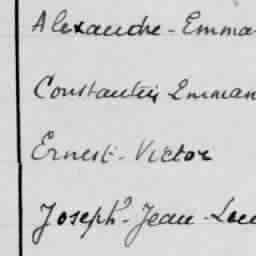 Alexandre - Emma
Constantin Emman
Ernest - Victor
Joseph - Jean - Lou